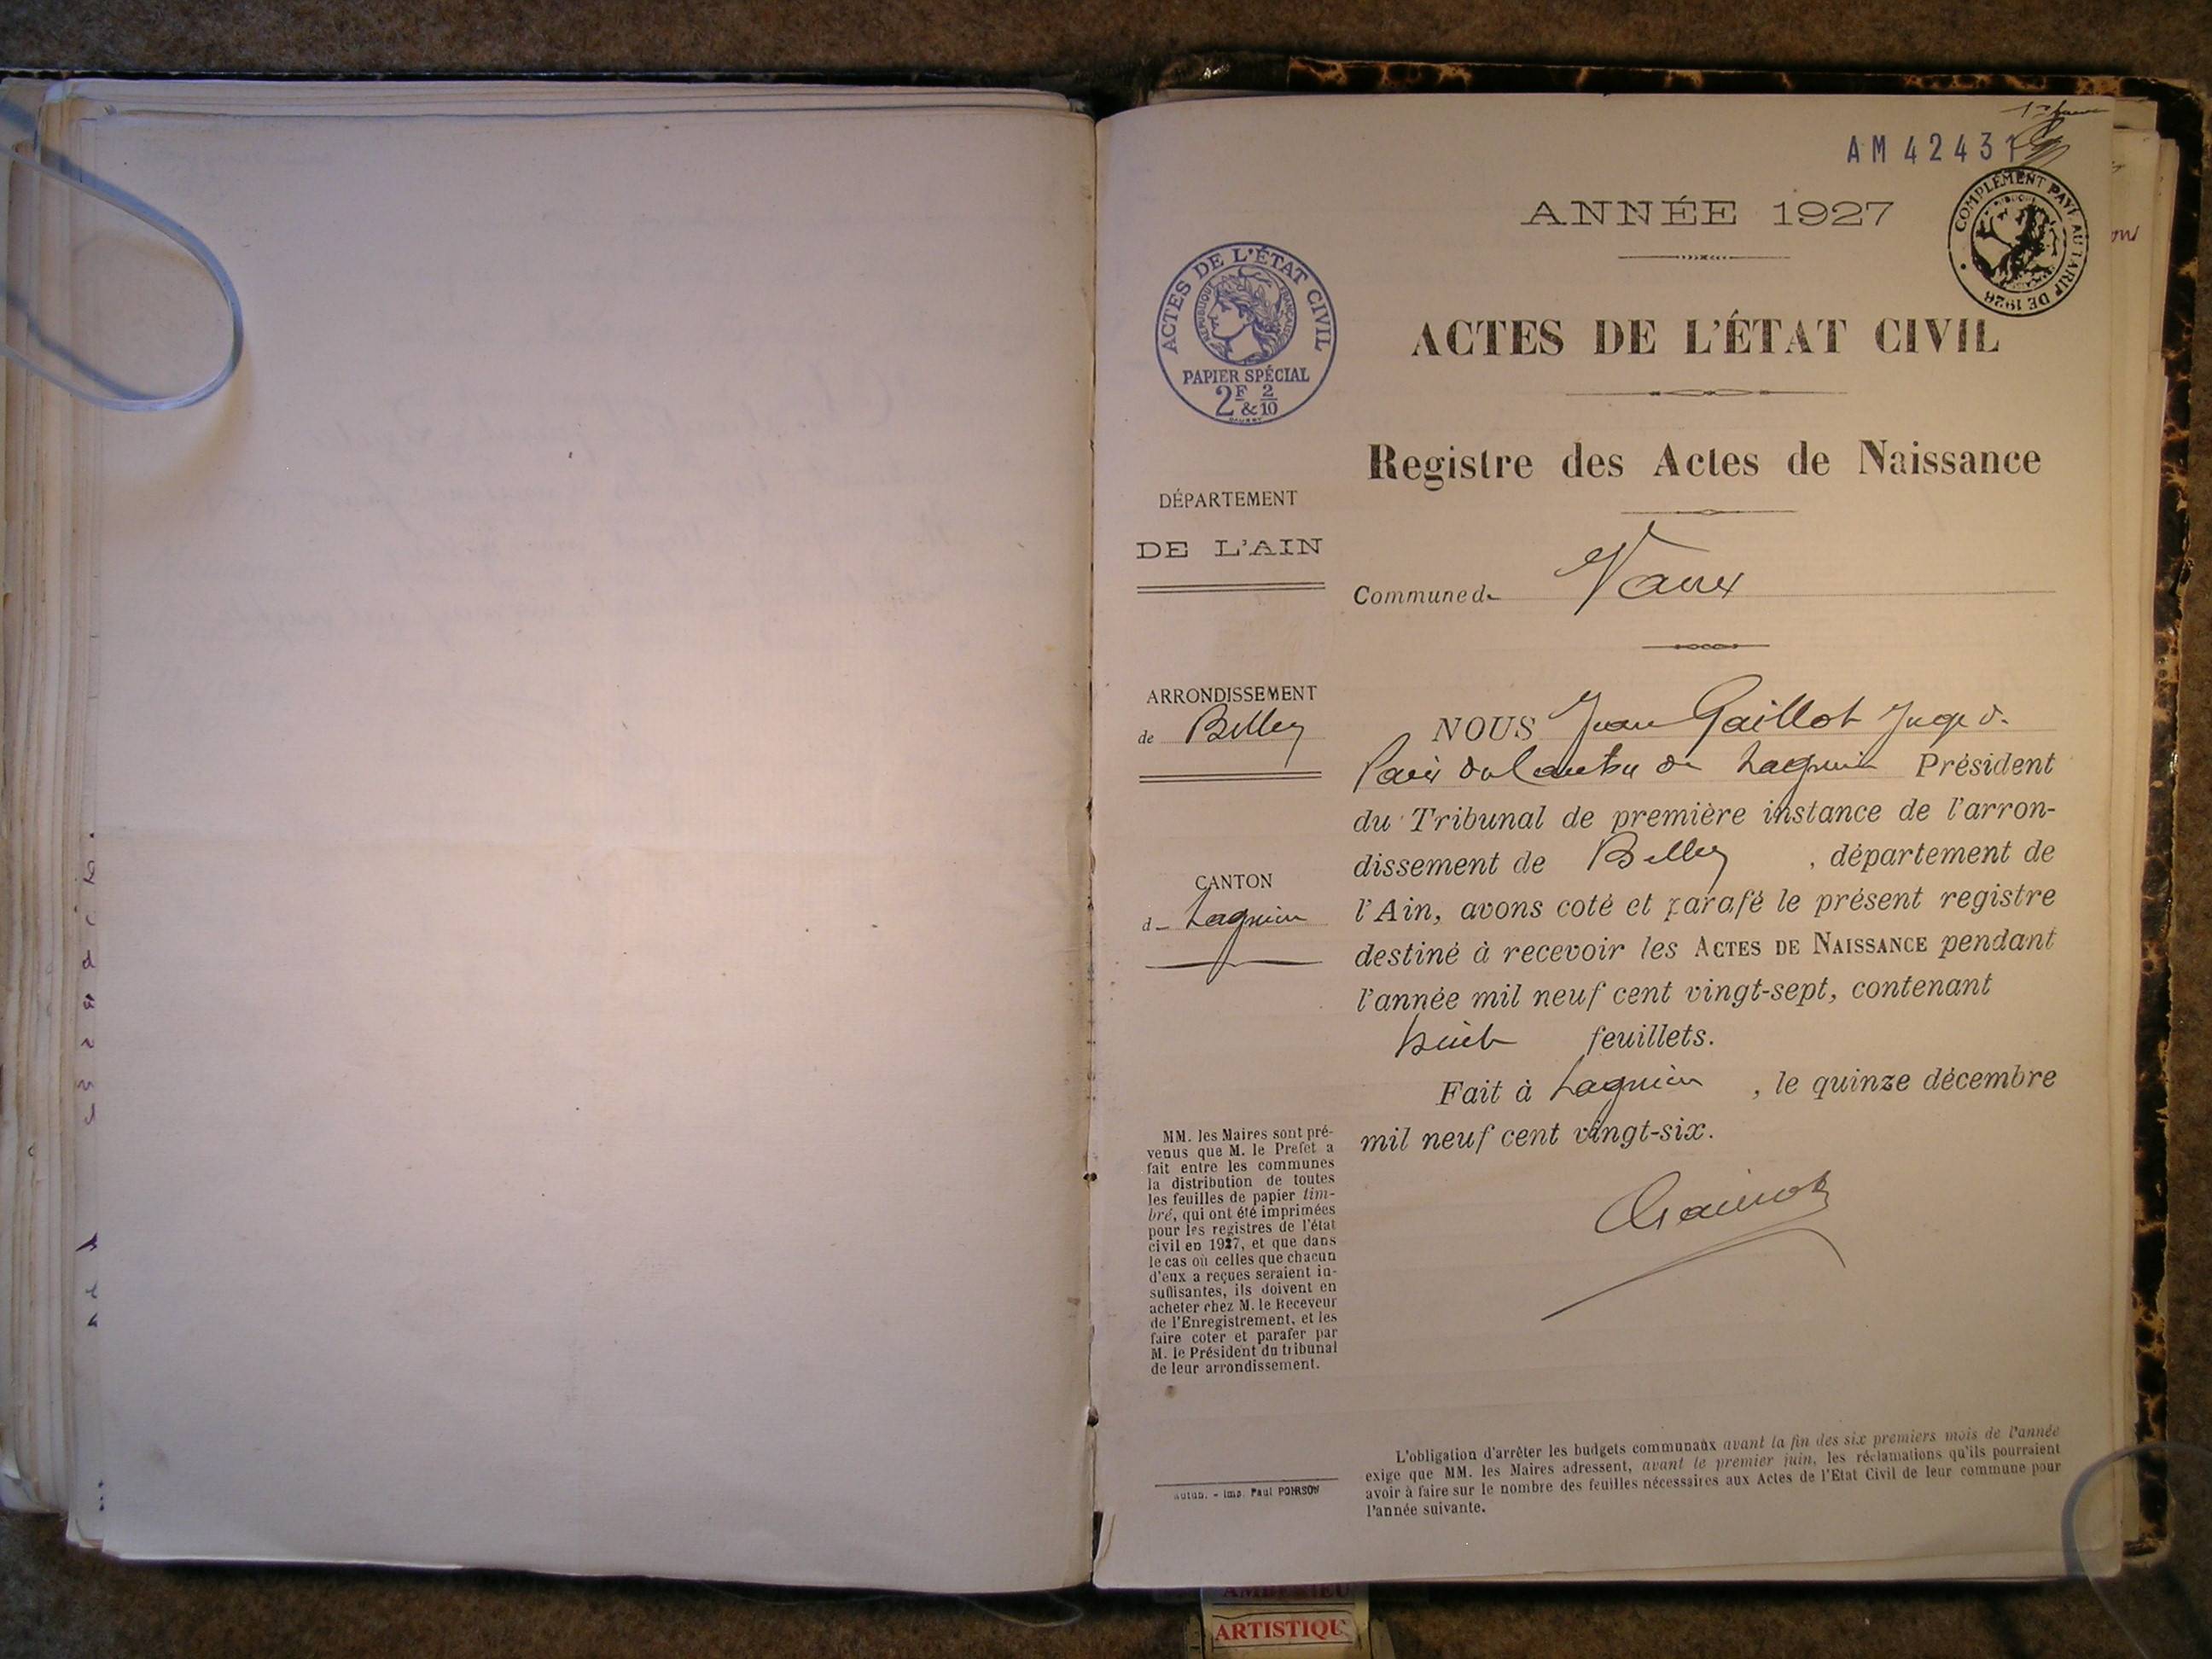 AM 4243
ANNÉE 1927
COMPLÉMENT PAYÉ AU TARIF DE 1926
ACTES DE L'ÉTAT CIVIL
RÉPUBLIQUE FRANÇAISE
PAPIER SPÉCIAL
2F & 2/10
ACTES DE L'ÉTAT CIVIL
Registre des Actes de Naissance
DÉPARTEMENT
DE L'AIN
Commune de Vaux
ARRONDISSEMENT
de Belley
CANTON
de Lagnieu
NOUS Jean Gaillot Juge de
Paix du Canton de Lagnieu Président
du Tribunal de première instance de l'arron-
dissement de Belley, département de
l'Ain, avons coté et parafé le présent registre
destiné à recevoir les ACTES DE NAISSANCE pendant
l'année mil neuf cent vingt-sept, contenant
huit feuillets.
Fait à Lagnieu, le quinze décembre
mil neuf cent vingt-six.
MM. les Maires sont pré-
venus que M. le Prefet a
fait entre les communes
la distribution de toutes
les feuilles de papier tim-
bré, qui ont été imprimées
pour les registres de l'état
civil en 1927, et que dans
le cas où celles que chacun
d'eux a reçues seraient in-
suffisantes, ils doivent en
acheter chez M. le Receveur
de l'Enregistrement, et les
faire coter et parafer par
M. le Président du tribunal
de leur arrondissement.
Autun. - Imp. Paul POIRSON
L'obligation d'arrêter les budgets communaux avant la fin des six premiers mois de l'année
exige que MM. les Maires adressent, avant le premier juin, les réclamations qu'ils pourraient
avoir à faire sur le nombre des feuilles nécessaires aux Actes de l'Etat Civil de leur commune pour
l'année suivante.
ARTISTIQU